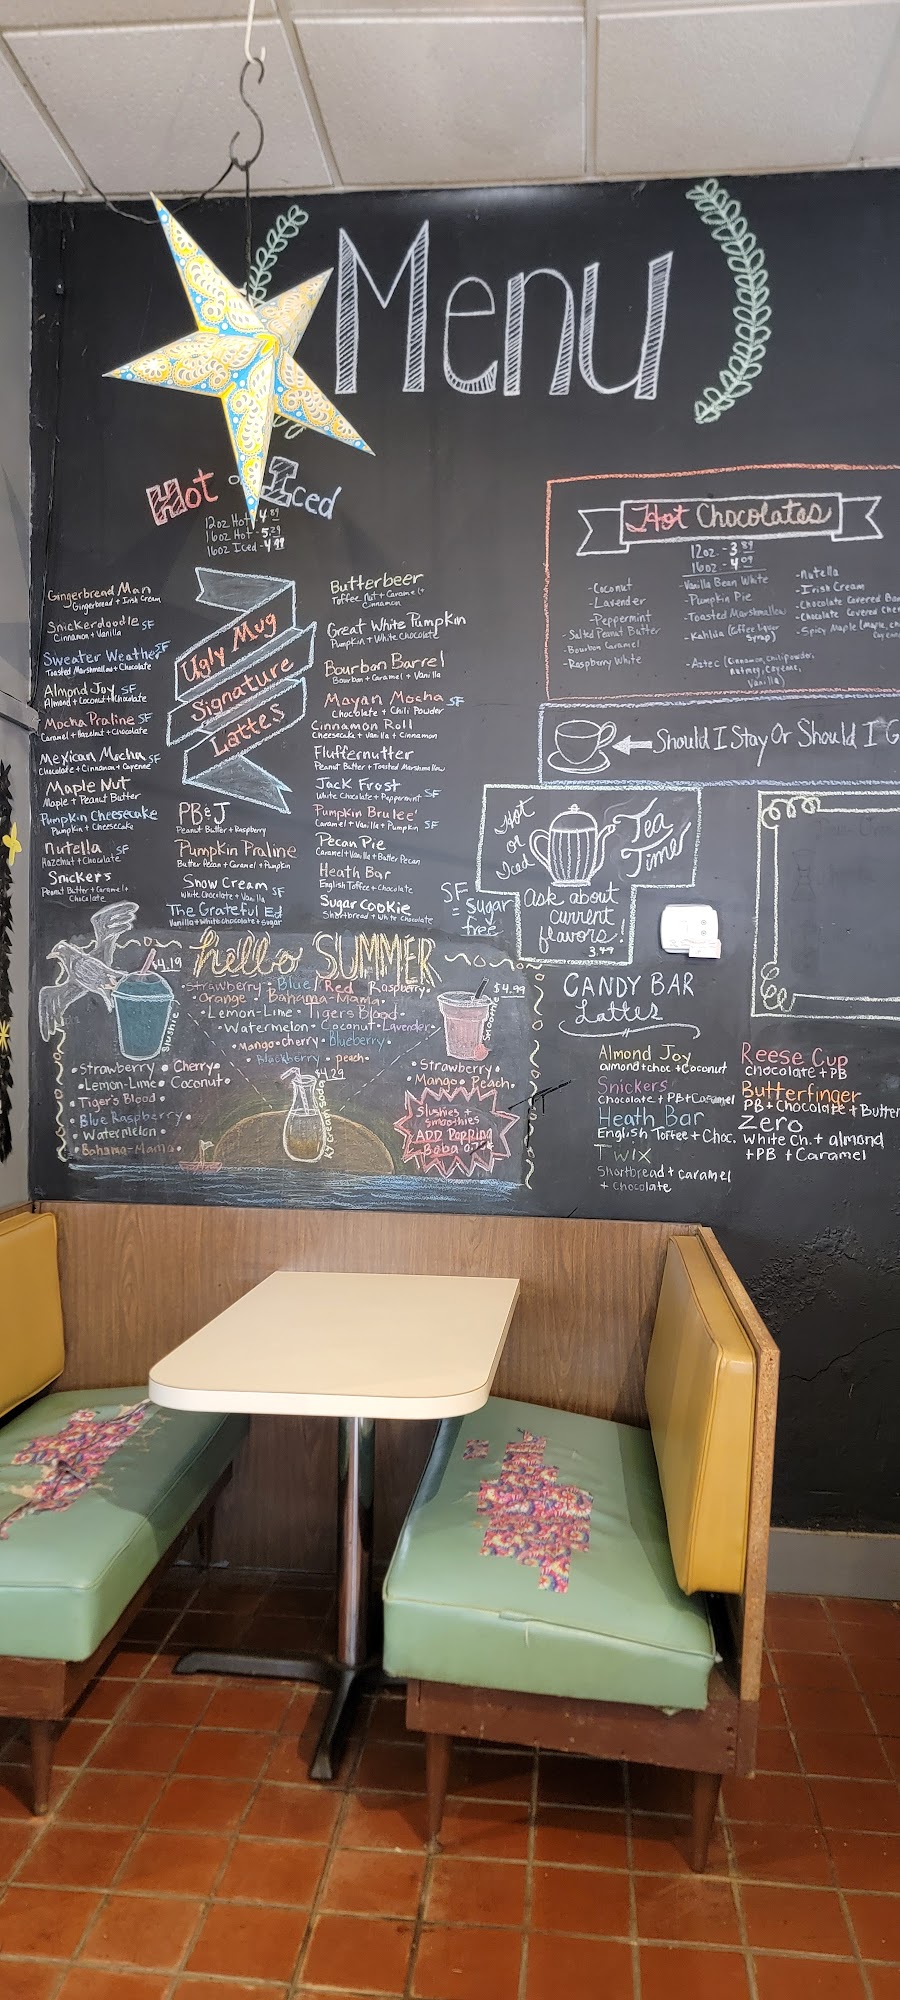 Menu
Hot or Iced
12oz Hot - 4.89
16oz Hot - 5.29
16oz Iced - 4.99
Ugly Mug
Signature
Lattes
Gingerbread Man
Gingerbread + Irish Cream
Snickerdoodle SF
Cinnamon + Vanilla
Sweater Weather SF
Toasted Marshmallow + Chocolate
Almond Joy SF
Almond + Coconut + Chocolate
Mocha Praline SF
Caramel + Hazelnut + Chocolate
Mexican Mocha SF
Chocolate + Cinnamon + Cayenne
Maple Nut
Maple + Peanut Butter
Pumpkin Cheesecake
Pumpkin + Cheesecake
Nutella SF
Hazelnut + Chocolate
Snickers
Peanut Butter + Caramel +
Chocolate
PB&J
Peanut Butter + Raspberry
Pumpkin Praline
Butter Pecan + Caramel + Pumpkin
Snow Cream SF
White Chocolate + Vanilla
The Grateful Ed
Vanilla + White Chocolate + Sugar
Butterbeer
Toffee Nut + Caramel +
Cinnamon
Great White Pumpkin
Pumpkin + White Chocolate
Bourbon Barrel
Bourbon + Caramel + Vanilla
Mayan Mocha SF
Chocolate + Chili Powder
Cinnamon Roll
Cheesecake + Vanilla + Cinnamon
Fluffernutter
Peanut Butter + Toasted Marshmallow
Jack Frost SF
White Chocolate + Peppermint
Pumpkin Brulee'
Caramel + Vanilla + Pumpkin SF
Pecan Pie
Caramel + Vanilla + Butter Pecan
Heath Bar
English Toffee + Chocolate
Sugar Cookie
Shortbread + White Chocolate
SF
= Sugar
free
Hot Chocolates
12oz. - 3.89
16oz - 4.09
- Coconut
- Lavender
- Peppermint
- Salted Peanut Butter
- Bourbon Caramel
- Raspberry White
- Vanilla Bean White
- Pumpkin Pie
- Toasted Marshmallow
- Kahlua (Coffee liquor
syrup)
- Aztec (Cinnamon, chili powder,
nutmeg, cayenne,
vanilla)
- Nutella
- Irish Cream
- Chocolate Covered
- Chocolate Covered
- Spicy Maple (Maple,
Should I Stay Or Should I G
Hot
or
Iced
Tea
Time
Ask about
current
flavors!
3.49
hello SUMMER
Strawberry • Blue/Red Raspberry •
• Orange • Bahama-Mama •
• Lemon-Lime • Tigers Blood •
• Watermelon • Coconut • Lavender •
Mango • cherry • Blueberry •
• Blackberry • peach •
$4.19
Slushie
• Strawberry • Cherry •
• Lemon-Lime • Coconut •
• Tiger's Blood •
• Blue Raspberry •
• Watermelon •
• Bahama-Mama •
$4.29
Cream Soda
$4.99
Smoothie
• Strawberry •
Mango • Peach •
Slushies +
smoothies
ADD Popping
Boba
CANDY BAR
Lattes
Almond Joy
almond + choc + Coconut
Snickers
Chocolate + PB + Caramel
Heath Bar
English Toffee + Choc.
TWIX
Shortbread + caramel
+ Chocolate
Reese Cup
chocolate + PB
Butterfinger
PB + Chocolate + Butter
Zero
White Ch. + almond
+ PB + Caramel